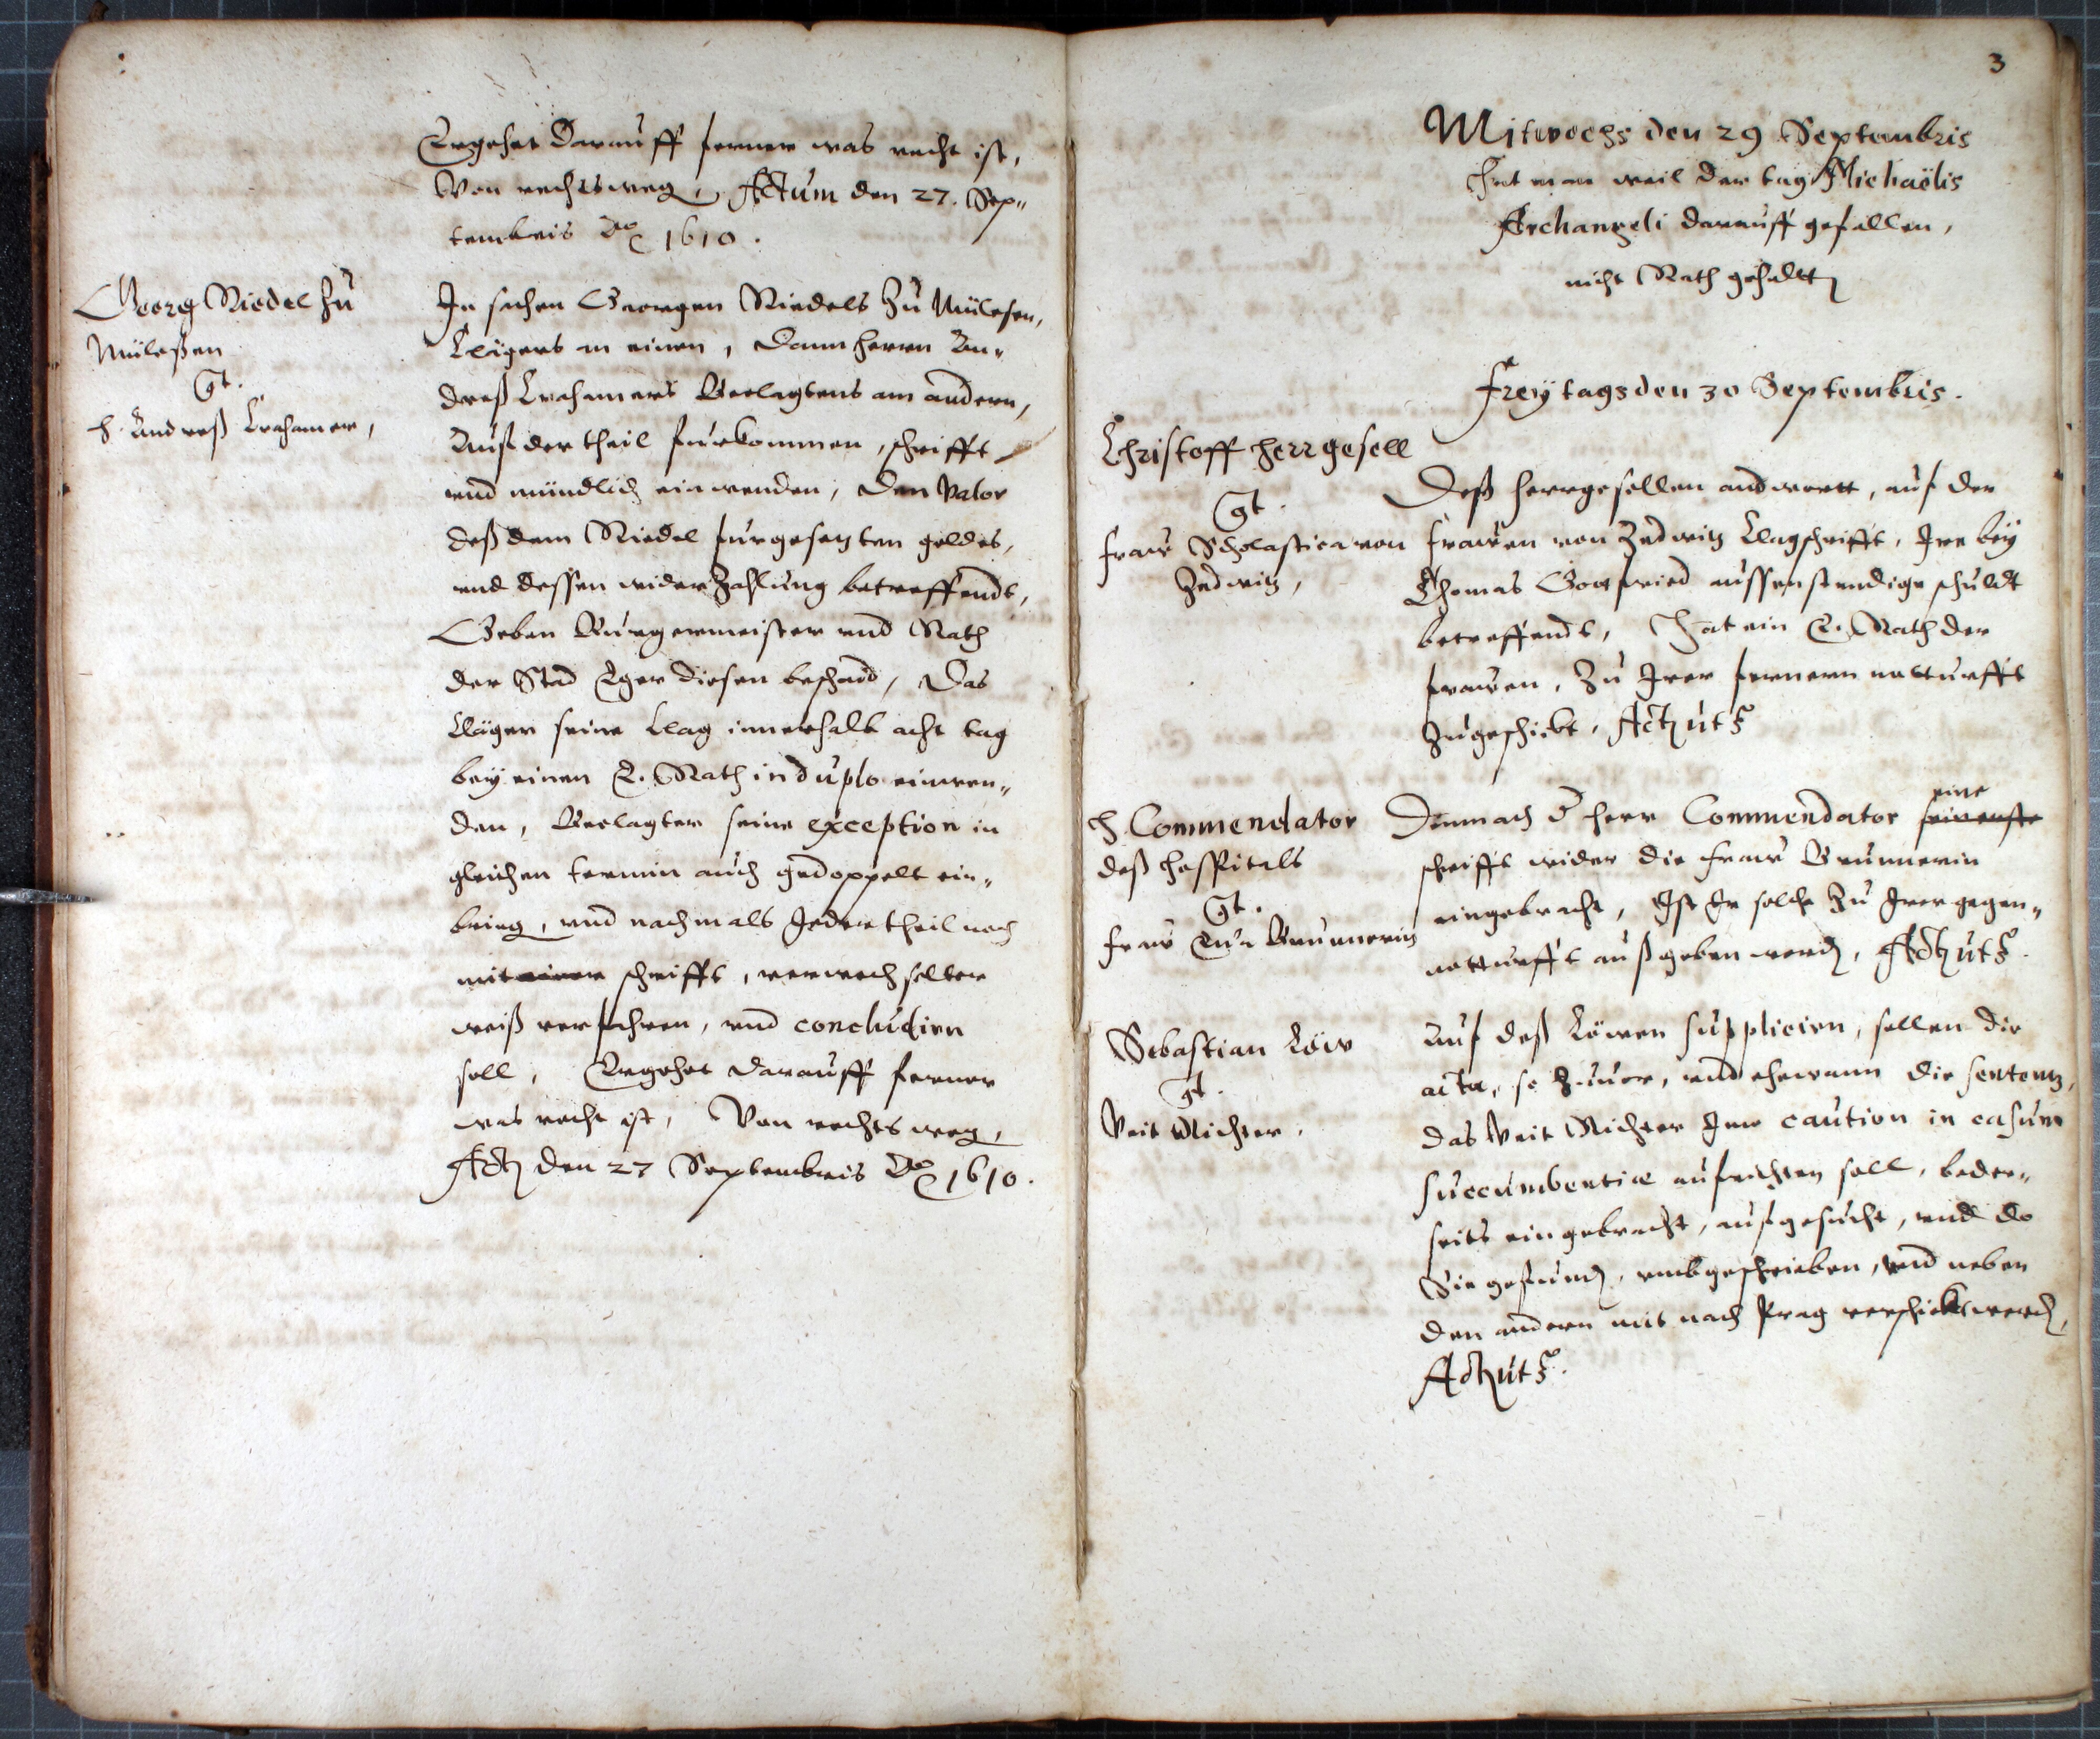 Ergehet darauff ferner was recht ist,
Von rechtsweg, Actum den 27. Sep-
tembris Ao 1610.
Georg Riedel zu
Mülessen
gt.
H. Andreß Crahamer,
In sachen Georgen Riedels zu Mülesen,
Clägers an einen, dann herrn An-
dreß Crahamers Beclagtens am andern,
Auß der theil furkommen, schrifft
und mündlich einwenden, den valor
deß dem Riedel furgesetzten geldes,
und dessen wider Zahlung betreffendt,
Geben Burgermeister und Rath
der Stad Eger diesen bescheid, Das
Cläger seine Clag innerhalb acht tag
bey einen E. Rath in duplo einwen-
den, Beclagter seine exception in
gleichen termin auch gedoppelt ein-
bring, und nachmals Jeder theil noch
mit einer schrifft, verwechselter
weiß verfahren, und concludirn
soll, Ergehet darauff ferner
was recht ist, Von rechtsweg,
Act den 27 Septembris Ao 1610.
3
Mitwochs den 29 Septembris
Hat man weil der tag Michaëlis
Archangeli darauff gefallen,
nicht Rath gehalten
Freytags den 30 Septembris.
Christoff Herrgesell
gt.
Fraw Scholastica von
Zedwitz,
Deß Herrgesellen andwortt, auf der
Frawen von Zedwitz Clagschrifft, Ire bey
Thomas Gottfried aussenstendige schuldt
betreffendt, Hat ein E. Rath der
frawen, zu Irer fernern notturfft
zugeschickt, Act ut s
H Commendator
deß hospitals
gt.
Fraw Eva Brunnerin
Demnach d herr Commendator eine
schrifft wider die fraw Brunnerin
eingebracht, Ist Ir solche zu Irer gegen-
notturfft außgeben word, Act ut s.
Sebastian Löw
gt.
Veit Richter,
Auf deß Löwen suppliciren, sollen die
acta, so zuvor, und ehe wann die sententz,
das Veit Richter Ime caution in casum
succumbentiæ aufrichten soll, beder-
seits eingebracht, aufgesucht, und do
Sie gefund, umbgeschrieben, und neben
den andern mit nach Prag verschickt werd,
Act ut s.